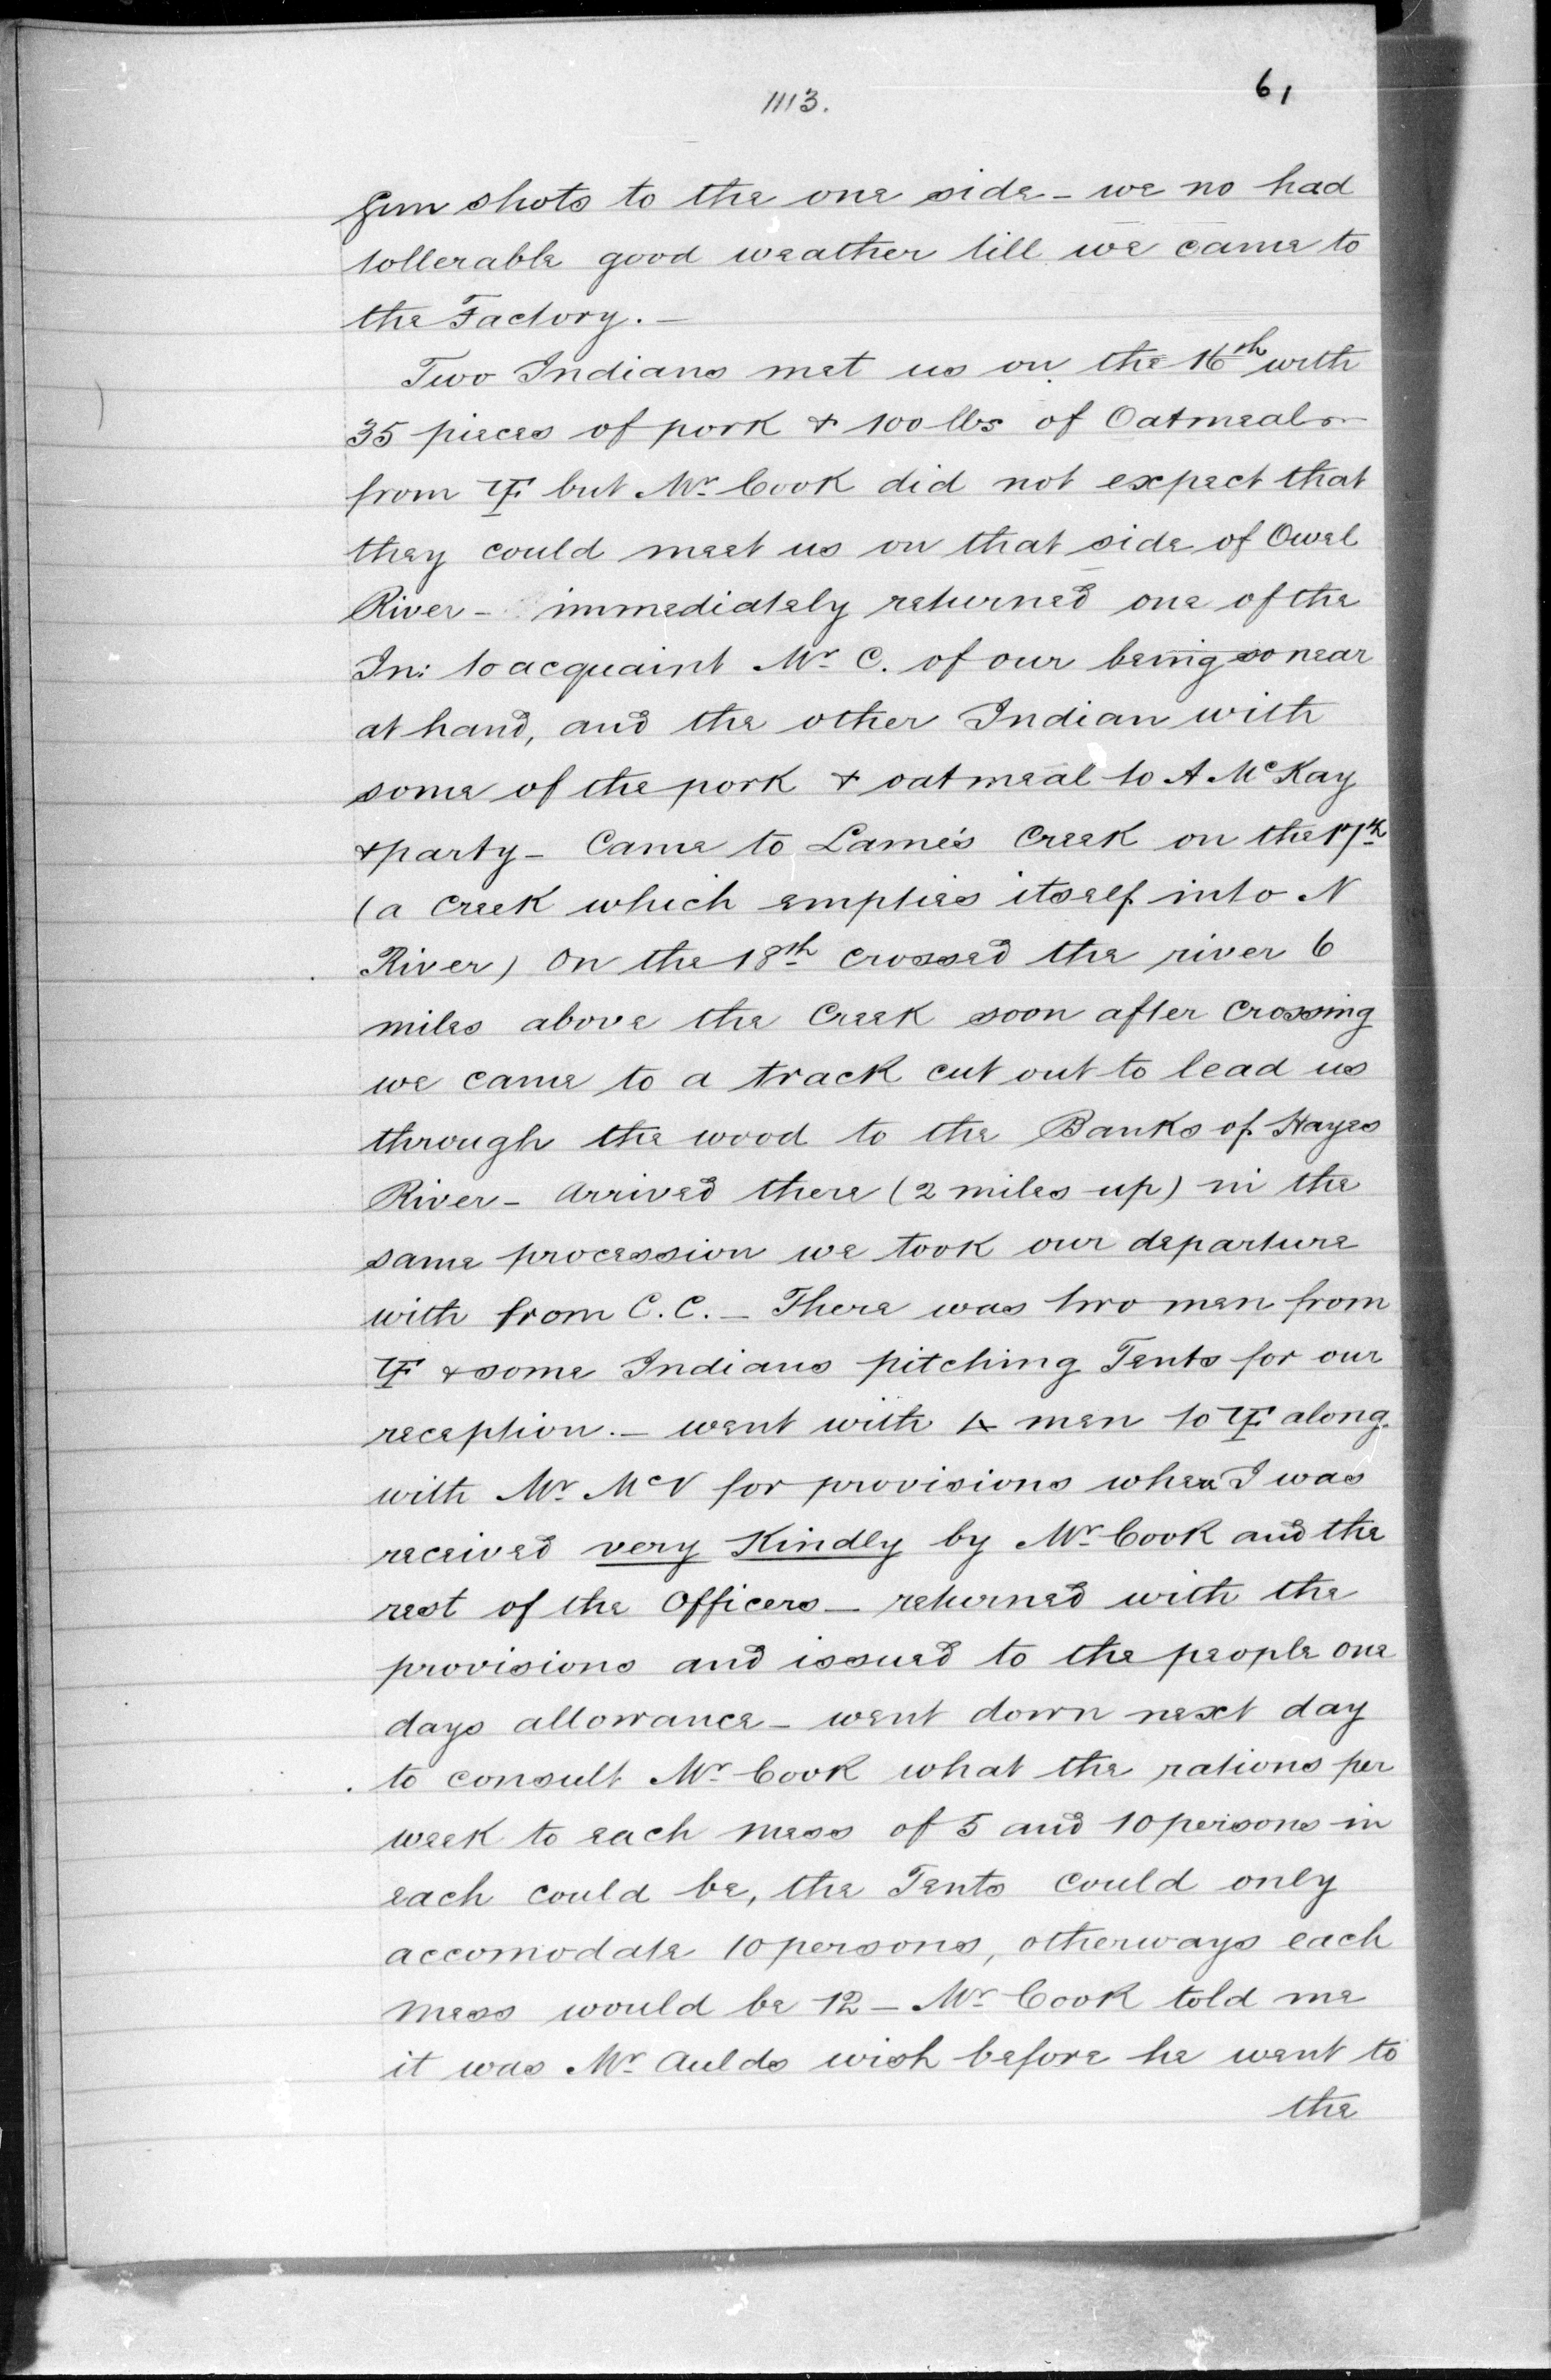 1113.
61
Gun shots to the one side - we no had
tollerable good weather till we came to
the Factory. -
Two Indians met us on the 16th with
35 pieces of pork & 100 lbs of Oatmeal
from YF but Mr Cook did not expect that
they could meet us on that side of Owel
River - immediately returned one of the
In: to acquaint Mr C. of our being so near
at hand, and the other Indian with
some of the pork & oatmeal to A McKay
& party - Came to Lame's Creek on the 17th
(a Creek which emplies itself into N
River) On the 18th crossed the river 6
miles above the Creek soon after Crossing
we came to a track cut out to lead us
through the wood to the Banks of Hayes
River - Arrived there (2 miles up) in the
same procession we took our departure
with from C. C. - There was two men from
YF & some Indians pitching Tents for our
reception. - went with men to YF along
with Mr McV for provisions when I was
received very Kindly by Mr Cook and the
rest of the Officers - returned with the
provisions and issued to the people one
days allowance - went down next day
to consult Mr Cook what the rations per
week to each mess of 5 and 10 persons in
each could be, the Tents could only
accomodate 10 persons, otherways each
mess would be 12 - Mr Cook told me
it was Mr Aulds wish before he went to
the